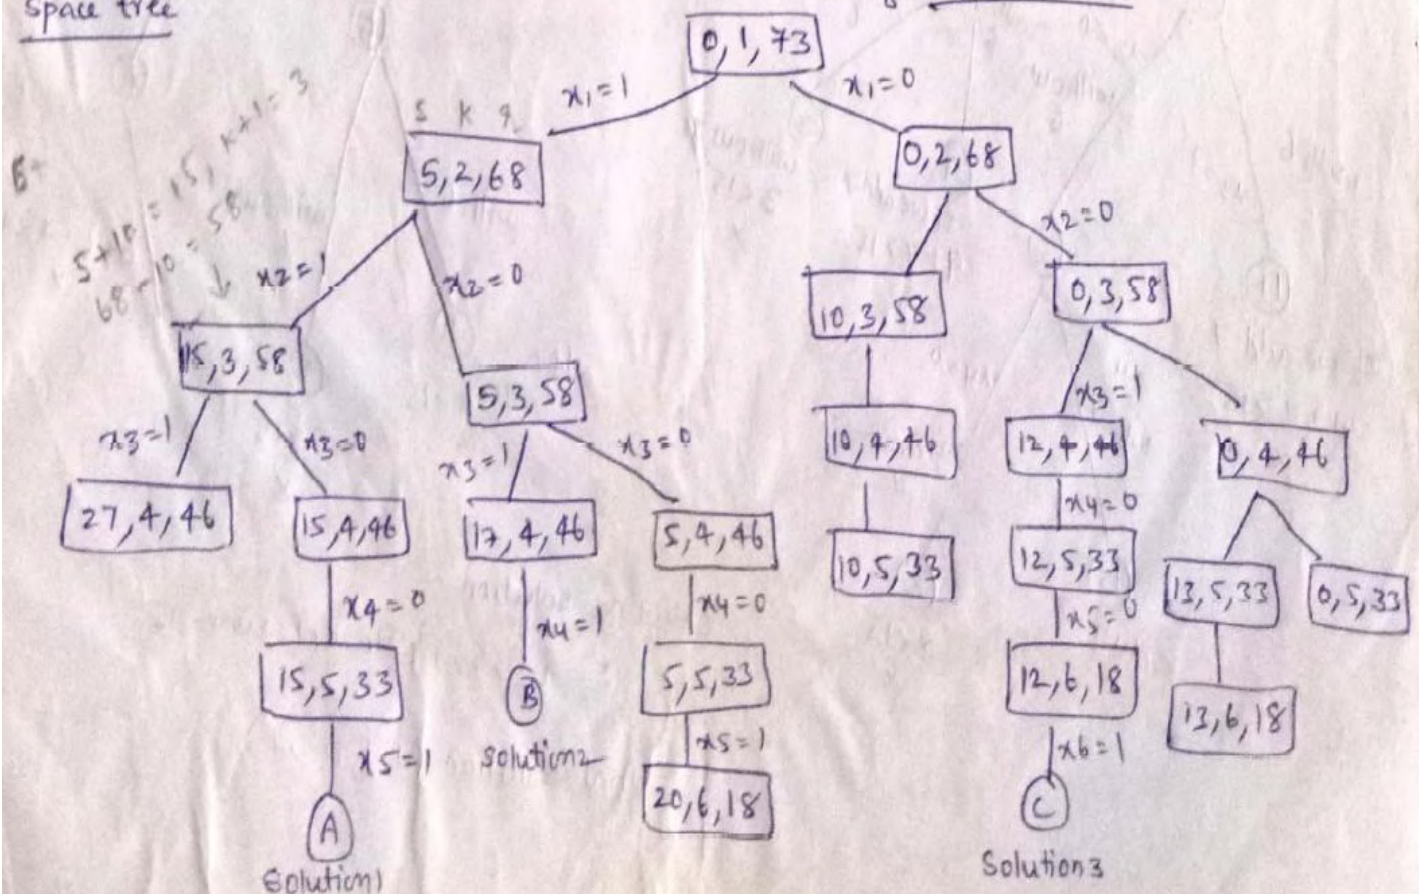 Space tree
0, 1, 73
x1=1
x1=0
s k r
5, 2, 68
0, 2, 68
5+10 = 15, k+1 = 3
68-10 = 58
x2=1
x2=0
x2=0
15, 3, 58
5, 3, 58
10, 3, 58
0, 3, 58
x3=1
x3=0
x3=1
x3=0
x3=1
27, 4, 46
15, 4, 46
17, 4, 46
5, 4, 46
10, 4, 46
12, 4, 46
0, 4, 46
x4=0
x4=1
x4=0
x4=0
15, 5, 33
B
5, 5, 33
10, 5, 33
12, 5, 33
13, 5, 33
0, 5, 33
x5=1
Solution2
x5=1
x5=0
20, 6, 18
12, 6, 18
13, 6, 18
x6=1
A
C
Solution1
Solution3